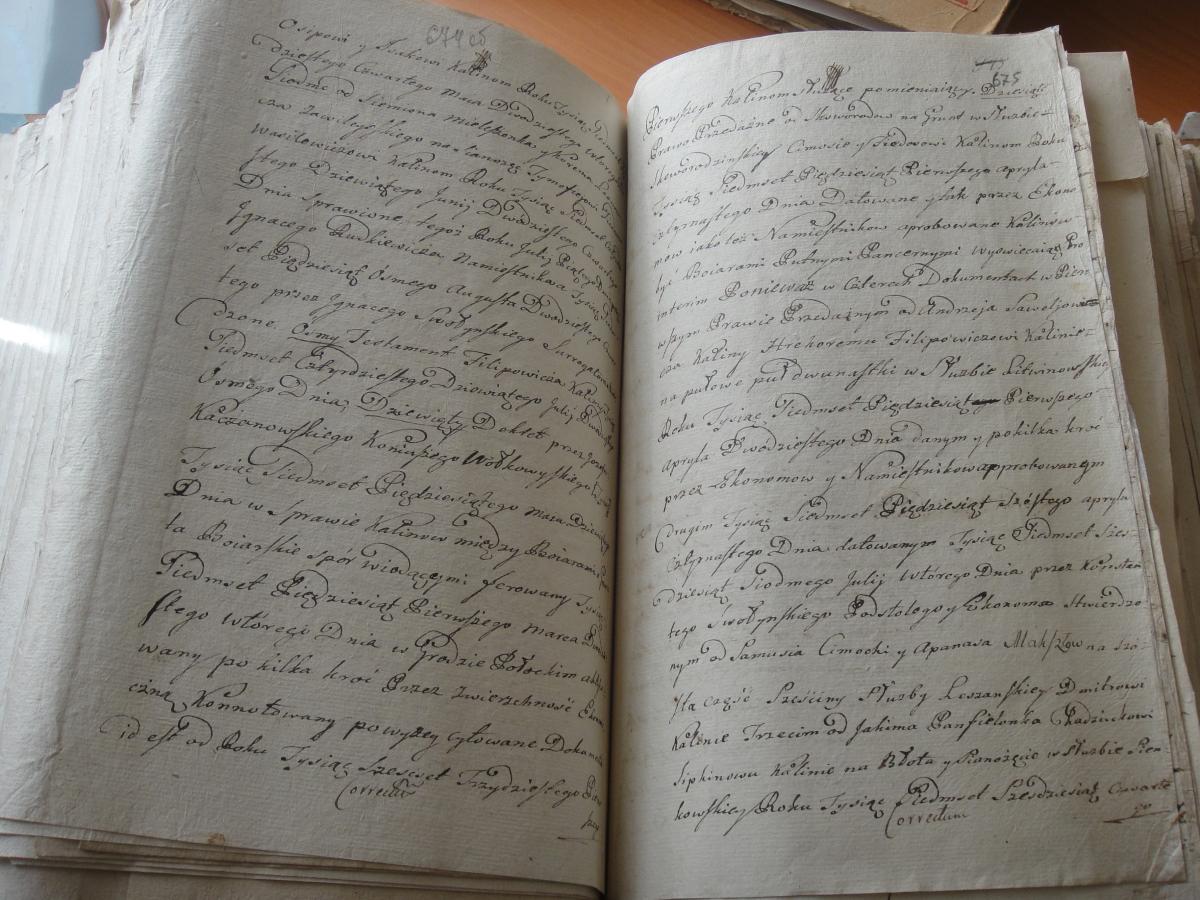 674 об
Osipowi y Isakowi Kalinom Roku Tysiąc Siedmset
dziestego Czwartego Maia Dwudziestego Wtorego
Siódme od Siemiona Mieleszka y Karola
cza Zawileyskiego na Sianozęć Tymofiejowi
Wasilowiczowi Kalinom Roku Tysiąc Siedmset
stego Dziewiątego Junij Dwudziestego Czwartego
Dnia Sprawione, tegoż Roku Julij Piątego
Ignacego Rudkiewicza Namiestnika a Tysiąc
set Pięćdziesiąt Osmego Augusta Dwudziestego
tego przez Ignacego Swołynskiego Surrogatora
dzone. Osmy Testament Filipowicza Kaliny
Siedmset Cztyrdziestego Dziewiątego Julij Dwudziestego
Osmego Dnia, Dziewiąty Dekret przez Jozefa
Kaczanowskiego Koniuszego Wołkowyskiego
Tysiąc Siedmset Pięćdziesiątego Maia Dziewiątego
Dnia w Sprawie Kalinow między Boiarami
ta Boiarskie spór wiodącymi ferowany Tysiąc
Siedmset Pięćdziesiąt Pierwszego Marca Dwudzie
stego Wtorego Dnia w Grodzie Połockim
wany po kilka kroć Przez Zwierzchność Ekono
czną Konnotowany powyzey cytowane Dokumenta
id est od Roku Tysiąc Szescset Trzydziestego Pier
Correctum
wszy
675
Pierwszego Kalinom Służące pomieniaiący. Dziesiąte
Prawo Przedażne od Skoworodow na Grunt w Służbie
Skoworodzinskiey Cimosie y Fiedorowi Kalinom Roku
Tysiąc Siedmset Pięćdziesiąt Pierwszego Apryla
Cztyrnastego Dnia Datowane y tak przez Ekono
mow iako też Namiestnikow aprobowane Kalinow
być Boiarami Putnymi Pancernymi wyswiecaią Pro
interim Poniewaz w Czterech Dokumentach w Pier
wszym Prawie Przedażnym od Andrzeja Saweljowi
cza Kaliny Hrehoremu Filipowiczowi Kalinie
na pułowę pułdwunastki w Służbie Litwinowskiey
Roku Tysiąc Siedmset Pięćdziesiąt Pierwszego
Apryla Dwódziestego Dnia danym y pokilka kroć
przez Ekonomow y Namiestnikow approbowanem
Drugim Tysiąc Siedmset Pięćdziesiąt Szóstego Apryla
Cztyrnastego Dnia datowanym Tysiąc Siedmset Szes
dziesiąt Siodmego Julij Wtorego Dnia przez Konstan
tego Swołynskiego Podstolego y Ekonoma Stwierdzo
nym od Samusia Cimochi y Apanasa Makszłow na szo
stą część Szesciny Służby Leszanskiey Dmitrowi
Kalinie Trzecim od Jakima Panfielonka Radziukowi
Sipkinowu Kalinie na Błota y Sianożęcie w Służbie Pien
kowskiey Roku Tysiąc Siedmset Szesdziesiąt Czwarte
Correctum
go